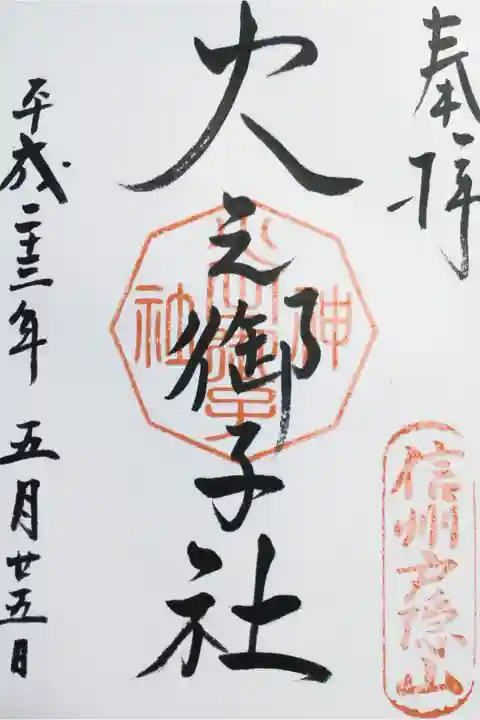 奉拝
信州戸隠山
火之御子社
神社
平成二十三年 五月廿五日